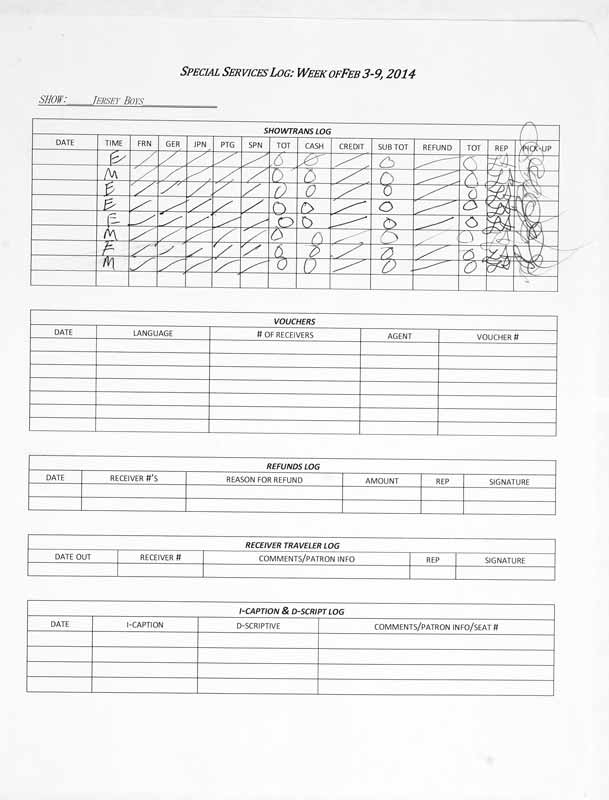 SPECIAL SERVICES LOG: WEEK OFFEB 3-9, 2014
SHOW: JERSEY BOYS
SHOWTRANS LOG
DATE TIME FRN GER JPN PTG SPN TOT CASH CREDIT SUB TOT REFUND TOT REP PICK-UP
E / / / / / 0 0 / 0 / 0
M / / / / / 0 0 / 0 / 0
E / / / / / 0 0 / 0 / 0
E / / / / / 0 0 / 0 / 0
E / / / / / 0 0 / 0 / 0
M / / / / / 0 0 / 0 / 0
E / / / / / 0 0 / 0 / 0
M / / / / / 0 0 / 0 / 0
VOUCHERS
DATE LANGUAGE # OF RECEIVERS AGENT VOUCHER #
REFUNDS LOG
DATE RECEIVER #'S REASON FOR REFUND AMOUNT REP SIGNATURE
RECEIVER TRAVELER LOG
DATE OUT RECEIVER # COMMENTS/PATRON INFO REP SIGNATURE
I-CAPTION & D-SCRIPT LOG
DATE I-CAPTION D-SCRIPTIVE COMMENTS/PATRON INFO/SEAT #